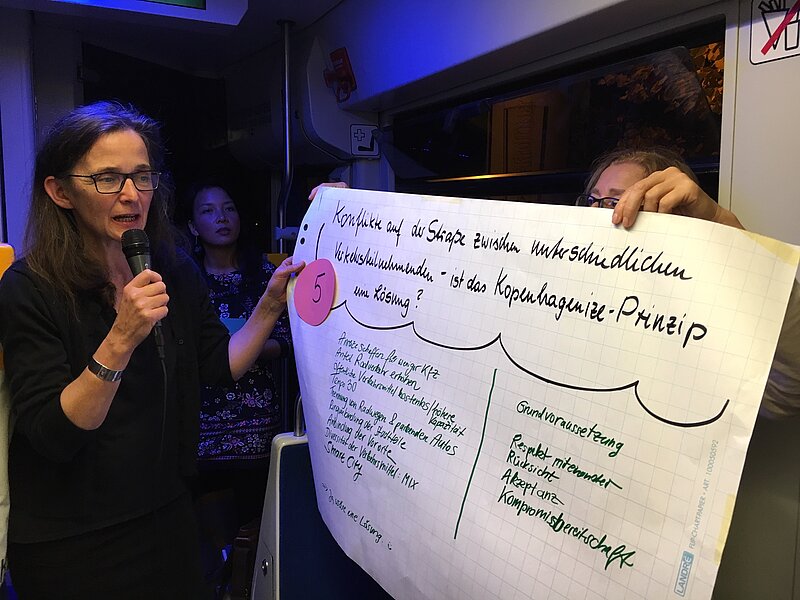 Konflikte auf der Straße zwischen unterschiedlichen
Verkehrsteilnehmenden - ist das Kopenhagenize-Prinzip
eine Lösung?
5
Anreize schaffen für weniger Kfz
Anteil Radverkehr erhöhen
öffentliche Verkehrsmittel kostenlos/höhere
Kapazität
Tempo 30
Trennung von Radwegen & parkenden Autos
der Stadtteile
Anbindung der Vororte
Diversität der Verkehrsmittel: MIX
City
eine Lösung
Grundvoraussetzung
Respekt miteinander
Rücksicht
Akzeptanz
Kompromissbereitschaft
LANDRÉ FLIPCHARTPAPIER • ART. 100050592